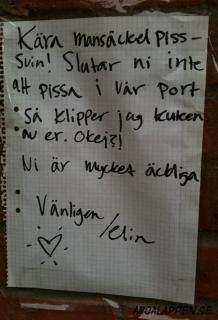 Kära mansäckel piss-
svin! Slutar ni inte
att pissa i vår port
Så klipper jag kuken
av er. Okej?!
Ni är mycket äckliga
Vänligen
/elin
ARGALAPPEN.SE